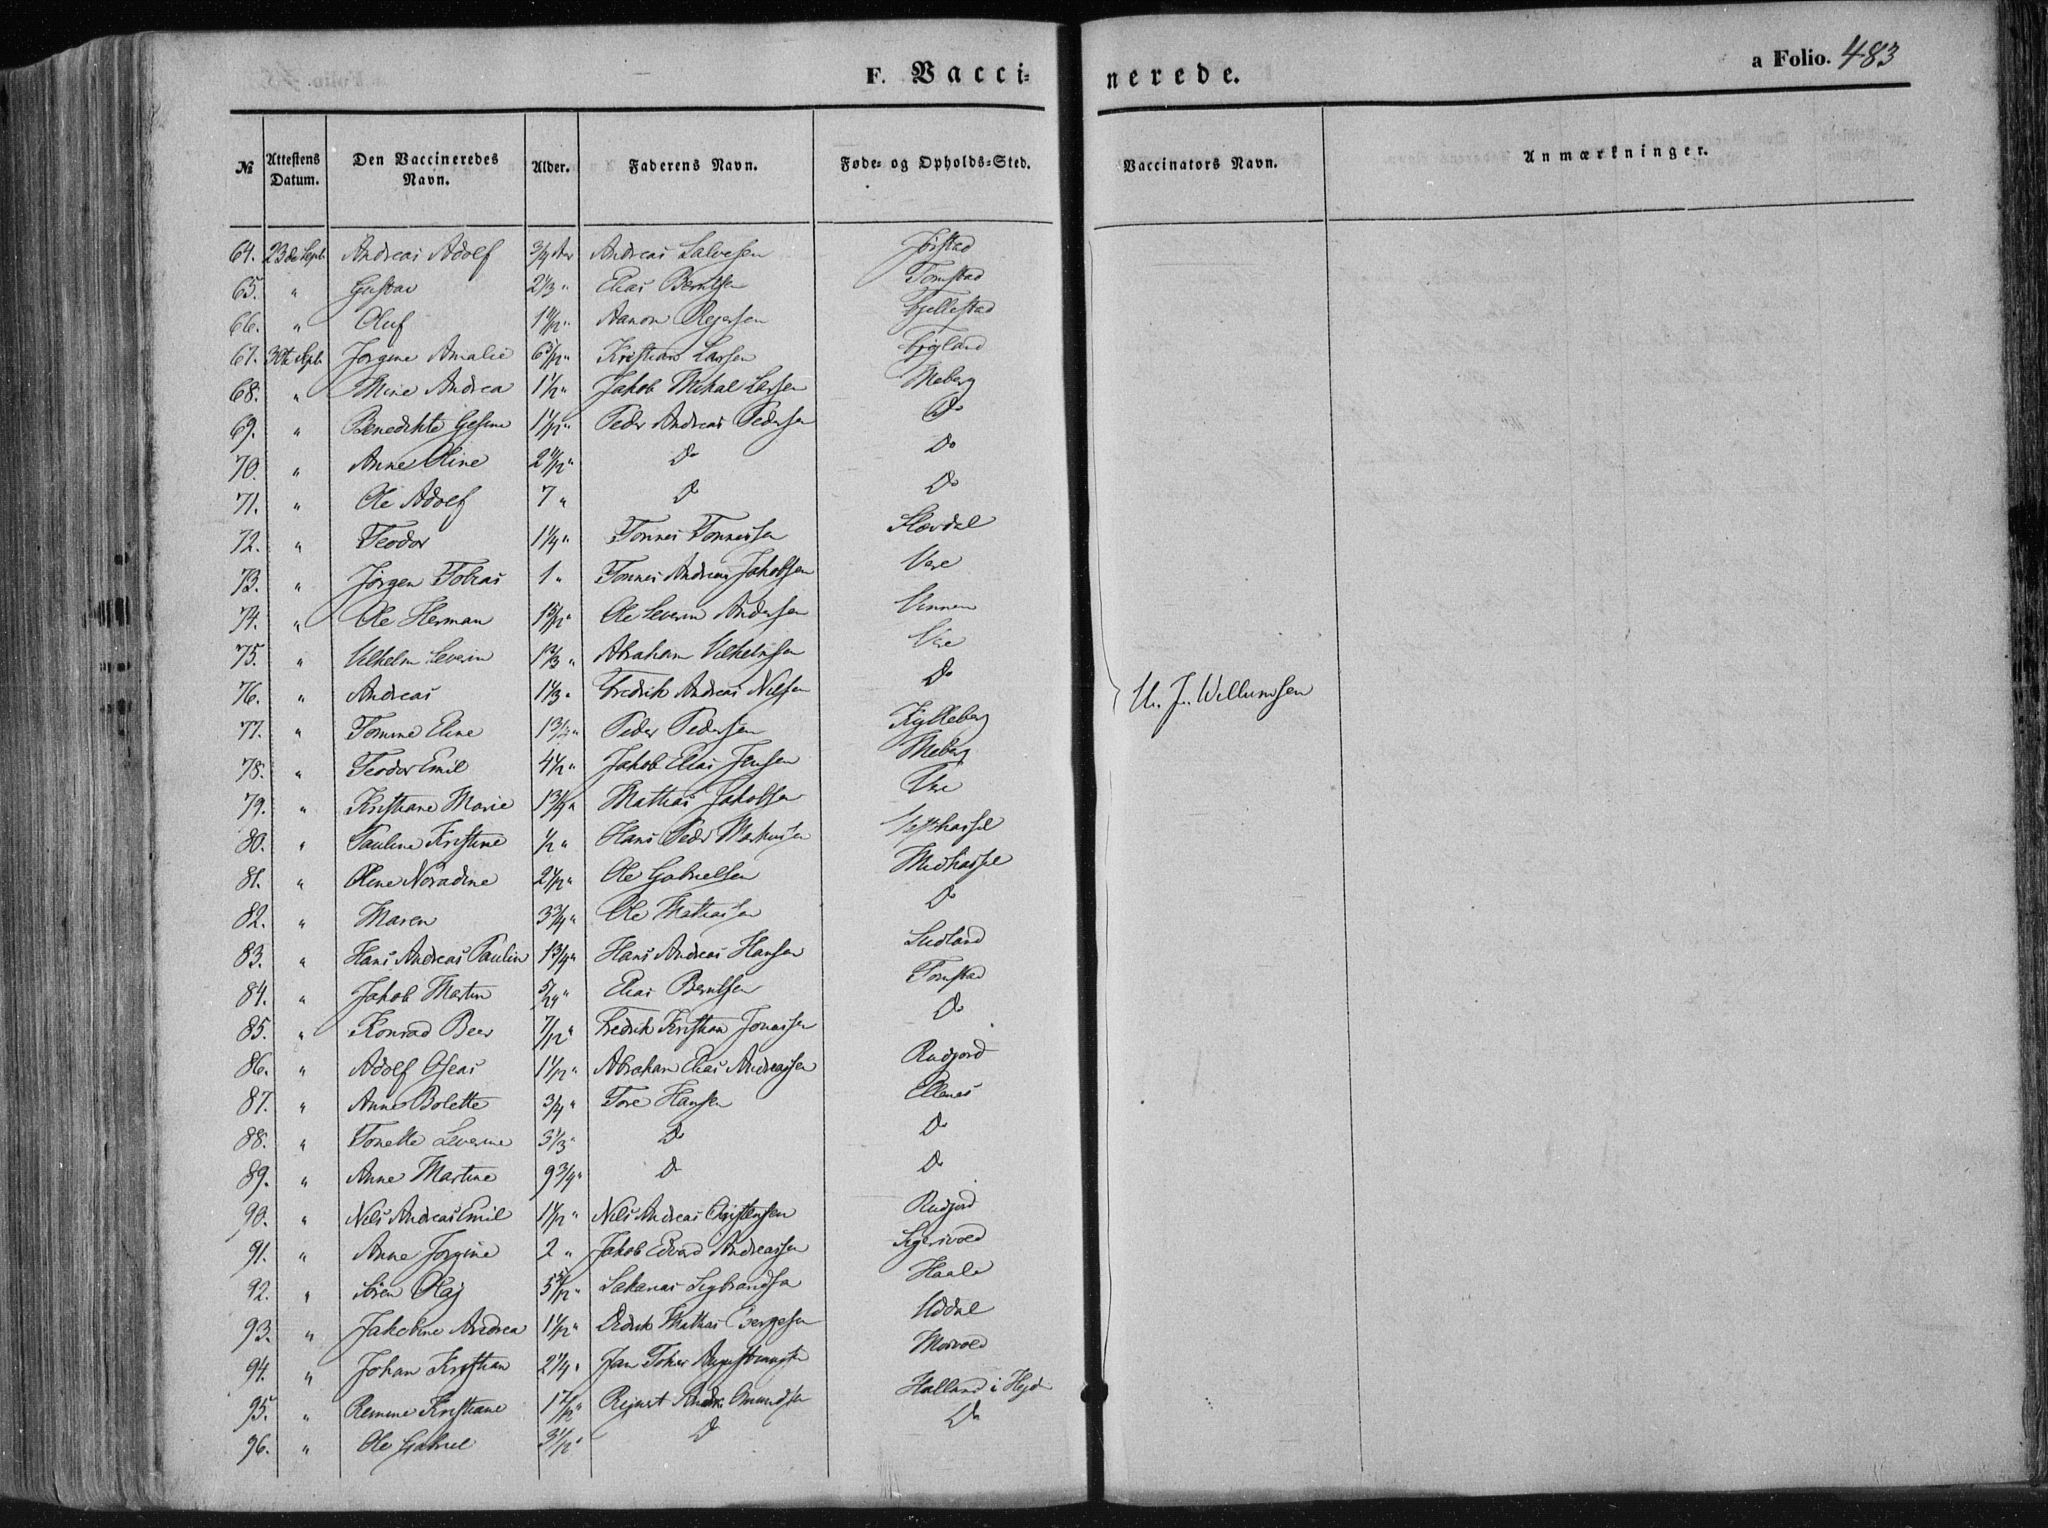 F. Vaccinerede.
a Folio. 483
№ | Attestens Datum. | Den Vaccineredes Navn. | Alder. | Faderens Navn. | Føde- og Opholds-Sted. | Vaccinators Navn. | Anmærkninger.
64. 23de Sept. Andreas Adolf 3/4 Aar Andreas Salvesen Jørstad
65. " Gustav 2 1/3 " Elias Berntsen Tomstad
66. " Oluf Aanon Reiersen Fjellestad
67. 30te Sept. Jørgine Amalie 6 5/12 " Kristian Larsen Frøyland
68. " Mine Andrea 1 1/2 " Jakob Mikal Larsen Meberg
69. " Benedikte Gesine Peder Andreas Pedersen Do
70. " Anne Oline Do Do
71. " Ole Adolf 7 " Do Do
72. " Teodor 1 1/4 " Tønnes Tønnessen Slævdal
73. " Jørgen Tobias 1 " Tønnes Andreas Jakobsen Vere
74. " Ole Herman 1 5/12 " Ole Severin Andersen
75. " Vilhelm Severin 1 2/3 " Abraham Vilhelmsen Vere
76. " Andreas 1 1/3 " Fredrik Andreas Nilssen Do
77. " Tomine Eline Peder Pedersen Kjelleberg
78. " Teodor Emil 4 1/2 " Jakob Elias Jensen Meberg
79. " Kristiane Marie 1 3/4 " Mathias Jakobsen Vere
80. " Pauline Kristine 1/2 " Hans Peder Markussen Vesthassel
81. " Oline Noradine 2 1/2 " Ole Gabrielsen Midthassel
82. " Maren 3 3/4 " Ole Mathiassen Do
83. " Hans Andreas Paulin 1 3/4 " Hans Andreas Hansen Sudland
84. " Jakob Martin 5/24 " Elias Berntsen Tomstad
85. " Konrad Beer 7/12 " Fredrik Kristian Jonassen Do
86. " Adolf Oseas Abraham Elias Andreassen Rudjord
87. " Anne Bolette 3/4 " Tore Hansen Ellenes
88. " Tonette Severine 3 1/3 " Do Do
89. " Anne Martine 9 3/4 " Do Do
90. " Nils Andreas Emil Nils Andreas Christensen Rudjord
91. " Anne Jørgine 2 " Jakob Edvard Andreassen Sigersvold
92. " Søren Olaj 5 5/12 " Sakarias Sigbrandsen Haale
93. " Jakobine Andrea Didrik Mathias Børgesen Uddal
94. " Johan Kristian 2 1/4 " Jan Toker
95. " Remine Kristiane 1 7/12 " Rejnert Andr. Omundsen Halland i Hejd
96. " Ole Gabriel Do Do
U. J. Willumsen